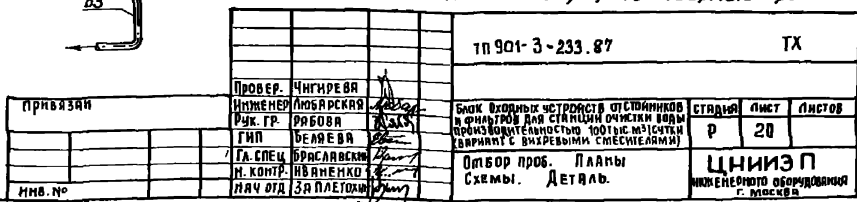 В3
ТП 901-3-233.87 ТХ
ПРИВЯЗАН
ИНВ.№
ПРОВЕР. ЧИГИРЕВА
ИНЖЕНЕР ЛЮБАРСКАЯ
РУК. ГР. РЯБОВА
ГИП БЕЛЯЕВА
ГЛ. СПЕЦ БРАСЛАВСКИЙ
Н. КОНТР. ИВАНЕНКО
НАЧ ОТД ЗАПЛЕТОХИН
БЛОК ВХОДНЫХ УСТРОЙСТВ ОТСТОЙНИКОВ
И ФИЛЬТРОВ ДЛЯ СТАНЦИИ ОЧИСТКИ ВОДЫ
ПРОИЗВОДИТЕЛЬНОСТЬЮ 100 ТЫС. М3/СУТКИ
(ВАРИАНТ С ВИХРЕВЫМИ СМЕСИТЕЛЯМИ)
СТАДИЯ ЛИСТ ЛИСТОВ
Р 20
ОТБОР ПРОБ. ПЛАНЫ
СХЕМЫ. ДЕТАЛЬ.
ЦНИИЭП
ИНЖЕНЕРНОГО ОБОРУДОВАНИЯ
Г. МОСКВА